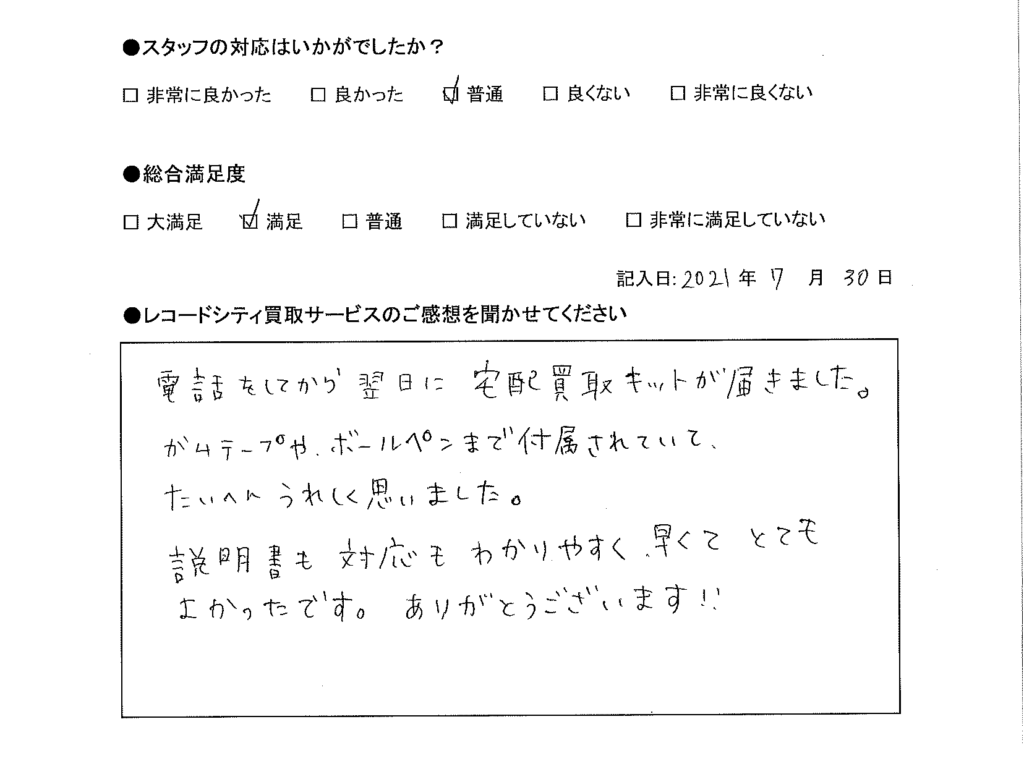 ●スタッフの対応はいかがでしたか？
□ 非常に良かった □ 良かった ☑ 普通 □ 良くない □ 非常に良くない
●総合満足度
□ 大満足 ☑ 満足 □ 普通 □ 満足していない □ 非常に満足していない
記入日: 2021 年 7 月 30 日
●レコードシティ買取サービスのご感想を聞かせてください
電話をしてから翌日に 宅配買取キットが届きました。
ガムテープや、ボールペンまで付属されていて、
たいへんうれしく思いました。
説明書も 対応も わかりやすく、早くて とても
よかったです。 ありがとうございます!!